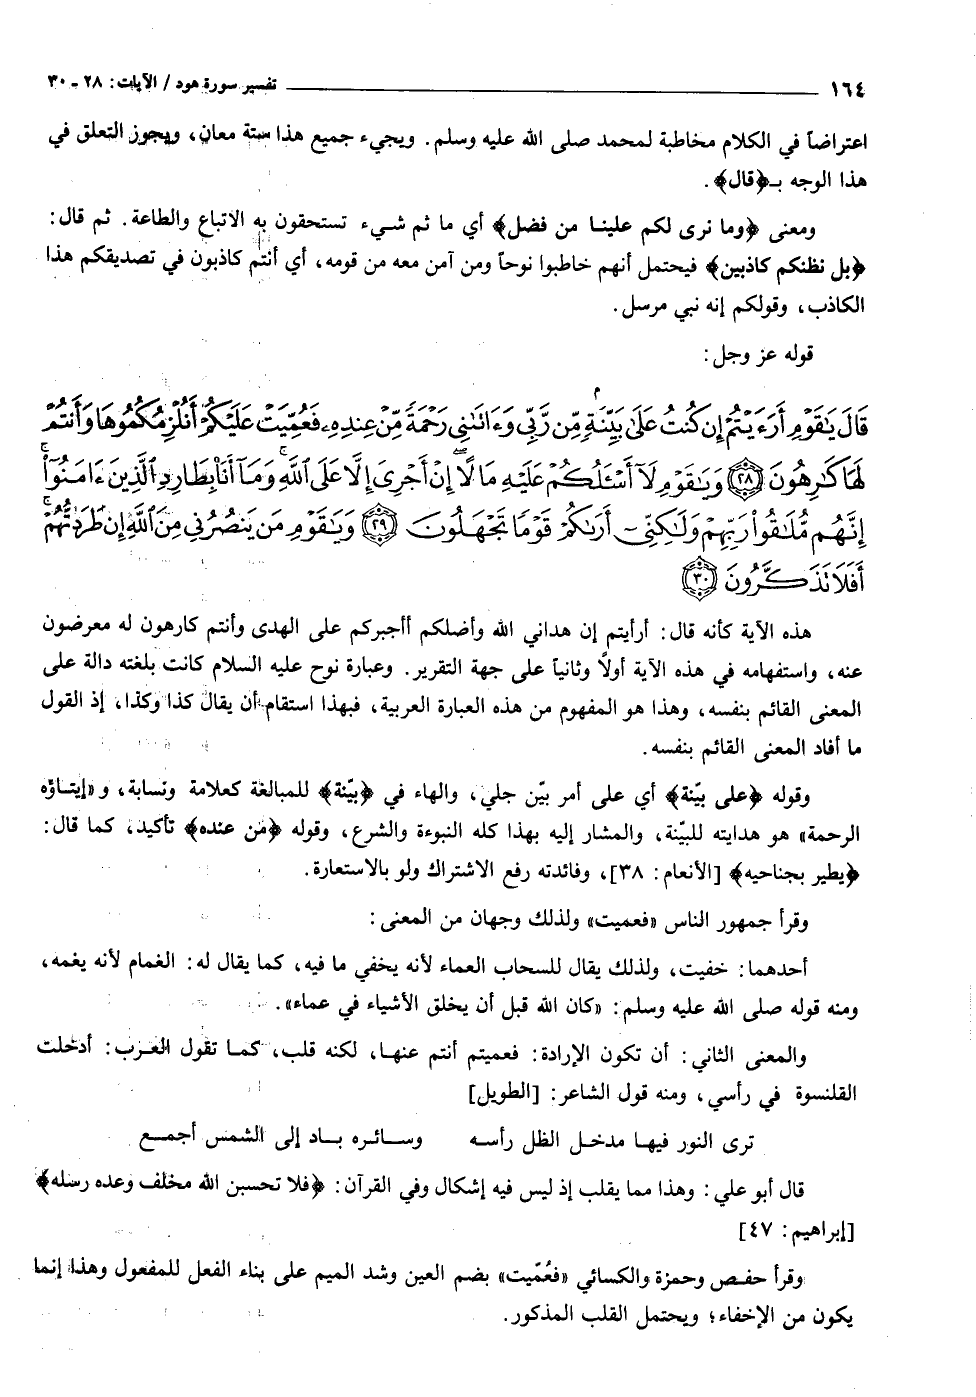 ١٦٤ تفسير سورة هود / الآيات: ٢٨ ـ ٣٠
اعتراضاً في الكلام مخاطبة لمحمد صلى الله عليه وسلم. ويجيء جميع هذا ستة معان، ويجوز التعلق في
هذا الوجه بـ﴿قال﴾.
ومعنى ﴿وما نرى لكم علينا من فضل﴾ أي ما ثم شيء تستحقون به الاتباع والطاعة. ثم قال:
﴿بل نظنكم كاذبين﴾ فيحتمل أنهم خاطبوا نوحاً ومن آمن معه من قومه، أي أنتم كاذبون في تصديقكم هذا
الكاذب، وقولكم إنه نبي مرسل.
قوله عز وجل:
قَالَ يَٰقَوْمِ أَرَءَيْتُمْ إِن كُنتُ عَلَىٰ بَيِّنَةٍ مِّن رَّبِّي وَءَاتَىٰنِي رَحْمَةً مِّنْ عِندِهِۦ فَعُمِّيَتْ عَلَيْكُمْ أَنُلْزِمُكُمُوهَا وَأَنتُمْ
لَهَا كَٰرِهُونَ ﴿٢٨﴾ وَيَٰقَوْمِ لَآ أَسْـَٔلُكُمْ عَلَيْهِ مَالًا إِنْ أَجْرِىَ إِلَّا عَلَى ٱللَّهِ وَمَآ أَنَا۠ بِطَارِدِ ٱلَّذِينَ ءَامَنُوٓا۟
إِنَّهُم مُّلَٰقُوا۟ رَبِّهِمْ وَلَٰكِنِّىٓ أَرَىٰكُمْ قَوْمًا تَجْهَلُونَ ﴿٢٩﴾ وَيَٰقَوْمِ مَن يَنصُرُنِى مِنَ ٱللَّهِ إِن طَرَدتُّهُمْ
أَفَلَا تَذَكَّرُونَ ﴿٣٠﴾
هذه الآية كأنه قال: أرأيتم إن هداني الله وأضلكم أأجبركم على الهدى وأنتم كارهون له معرضون
عنه، واستفهامه في هذه الآية أولاً وثانياً على جهة التقرير. وعبارة نوح عليه السلام كانت بلغته دالة على
المعنى القائم بنفسه، وهذا هو المفهوم من هذه العبارة العربية، فبهذا استقام أن يقال كذا وكذا، إذ القول
ما أفاد المعنى القائم بنفسه.
وقوله ﴿على بيّنة﴾ أي على أمر بيّن جلي، والهاء في ﴿بيّنة﴾ للمبالغة كعلامة ونسابة، و«إيتاؤه
الرحمة» هو هدايته للبيّنة، والمشار إليه بهذا كله النبوءة والشرع، وقوله ﴿من عنده﴾ تأكيد، كما قال:
﴿يطير بجناحيه﴾ [الأنعام: ٣٨]، وفائدته رفع الاشتراك ولو بالاستعارة.
وقرأ جمهور الناس «فعميت» ولذلك وجهان من المعنى:
أحدهما: خفيت، ولذلك يقال للسحاب العماء لأنه يخفي ما فيه، كما يقال له: الغمام لأنه يغمه،
ومنه قوله صلى الله عليه وسلم: «كان الله قبل أن يخلق الأشياء في عماء».
والمعنى الثاني: أن تكون الإرادة: فعميتم أنتم عنها، لكنه قلب، كما تقول العرب: أدخلت
القلنسوة في رأسي، ومنه قول الشاعر: [الطويل]
ترى النور فيها مدخل الظل رأسه وسائره باد إلى الشمس أجمع
قال أبو علي: وهذا مما يقلب إذ ليس فيه إشكال وفي القرآن: ﴿فلا تحسبن الله مخلف وعده رسله﴾
[إبراهيم: ٤٧]
وقرأ حفص وحمزة والكسائي «فعُمّيت» بضم العين وشد الميم على بناء الفعل للمفعول وهذا إنما
يكون من الإخفاء؛ ويحتمل القلب المذكور.